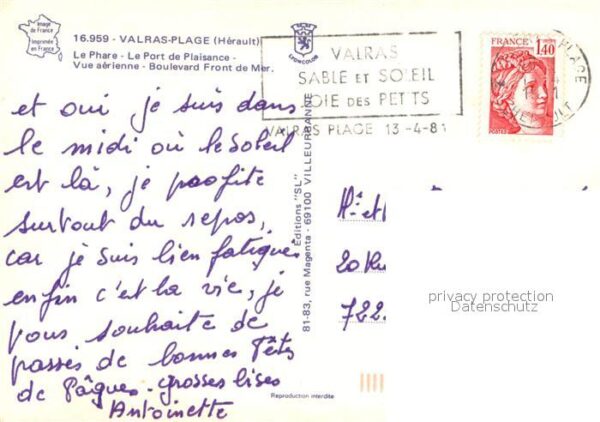 Image de France
Imprimée en France
16.959 - VALRAS-PLAGE (Hérault)
Le Phare - Le Port de Plaisance -
Vue aérienne - Boulevard Front de Mer.
LYONCOLOR
VALRAS
SABLE ET SOLEIL
JOIE DES PETITS
VALRAS PLAGE 13-4-81
FRANCE
1,40
POSTES
PLAGE
HERAULT
et oui je suis dans
le midi où le soleil
est là, je profite
surtout du repos,
car je suis bien fatiguée
enfin c'est la vie, je
vous souhaite de
passés de bonnes Fêtes
de Pâques. grosses bises
Antoinette
Editions "SL"
81-83, rue Magenta - 69100 VILLEURBANNE
Mr et
20 Ru
722
privacy protection
Datenschutz
Reproduction interdite